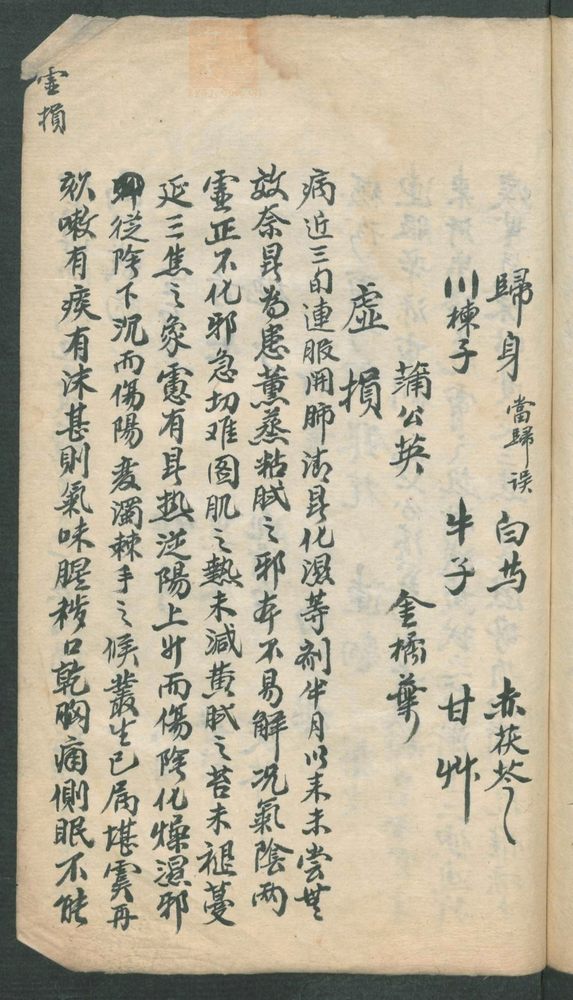 歸身 當歸误 白芍 赤茯苓
川楝子 牛子 甘艸
蒲公英 金橘葉
虛損
病近三旬連服開肺清昃化濕等剂半月以来未尝無
效奈昃为患薰蒸粘腻之邪本不易解况氣陰两
虛正不化邪急切难圖肌之熱未減黄腻之苔未褪蔓
延三焦之象慮有昃热逆陽上升而傷陰化燥濕邪
從陰下沉而傷陽变濁棘手之候叢生已属堪虞再
欬嗽有痰有沫甚則氣味腥秽口乾胸痛側眠不能
虛損